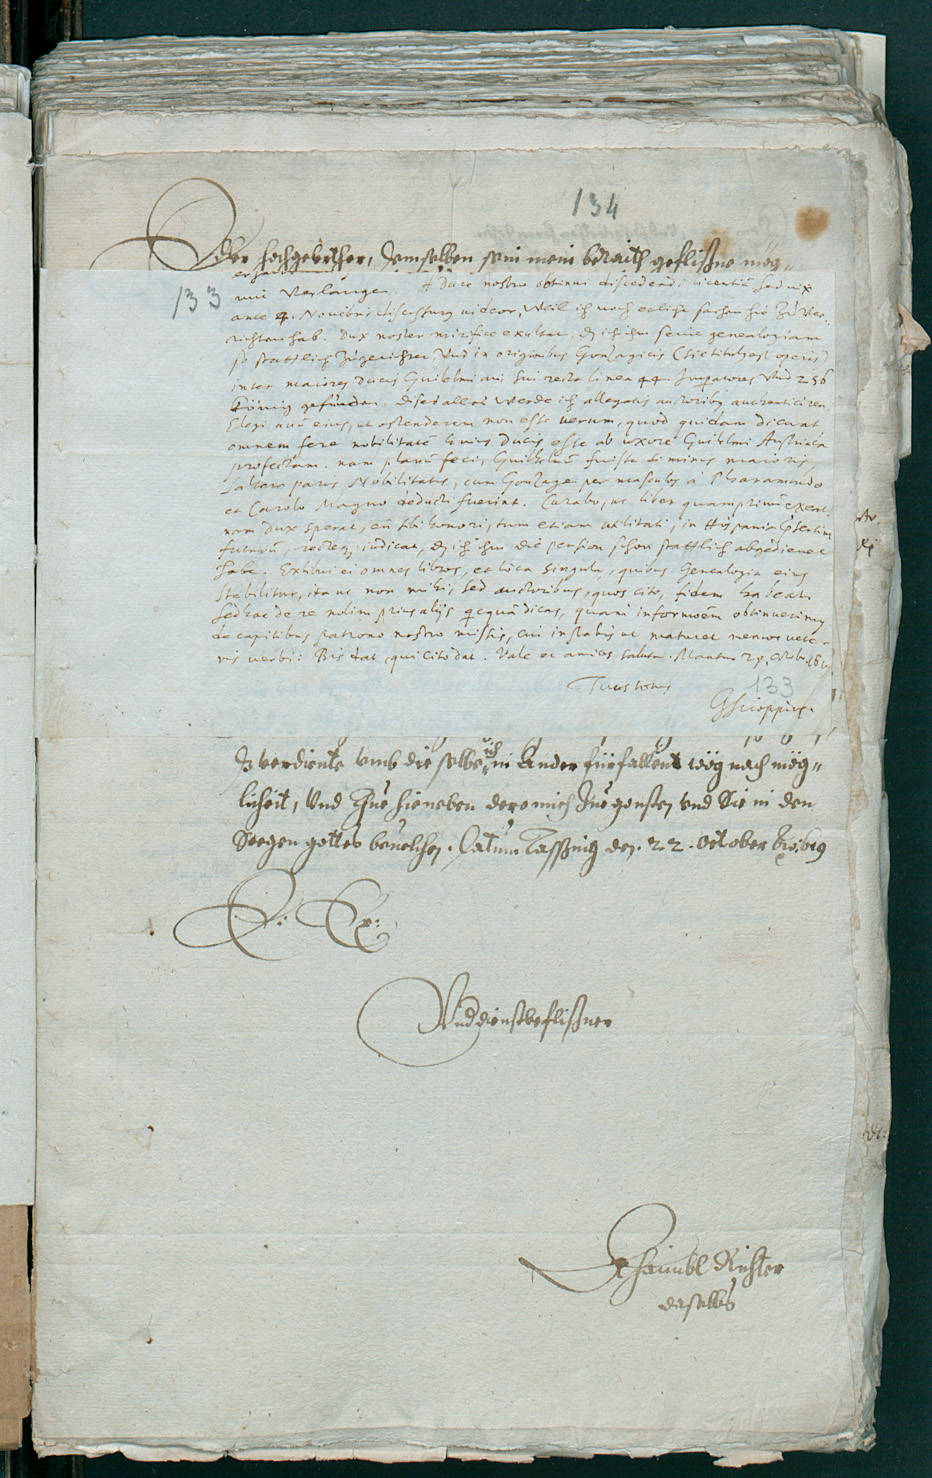 134
Der hochgeb: Ihr, demselben sein mein beraith geflißne mög„
133
mit verlangen. A Duce nostro obtinui discedendi licentiam, sed vix
ante 4. Novembris discessurus videor, Weil ich noch etliche sachen hie zu ver„
richten hab. Dux noster mirifice exultat, dz ich ihm seine genealogiam
so stattlich zugerichtet, Und in originibus Gonzagicis (sic titulus est operis)
inter maiores Ducis Guilielmi avi sui recta linea 44 Imperatores Und 256
König gefunden. dises alles werde ich allegatis auctoribus authenticiren
Elegi avum eius, ut ostenderem non esse verum, quod quidam dicunt
omnem fere nobilitatem huius Ducis esse ab uxore Guilielmi Austriaca
profectam. nam planum feci, Guilielmum fuisse si minus maioris,
saltem paris Nobilitatis, cum Gonzagae per masculos a Pharamundo
et Carolo Magno deducti fuerint. Curabo, ut liber quamprimum exeat,
nam Dux sperat, eum sibi honori, tum etiam utilitati, in Hispania praesertim
futurum, recteque iudicat, dz ich ihm die pension schon stattlich abgedienet
habe. Exhibui ei omnes libros, et loca singula, quibus Genealogia eius
stabilitur, ita ut non mihi, sed auctoribus, quos cito, fidem habeat.
Sed hac de re nolim prius alijs quicquam dicas, quam informationem obtinuerimus
de capitibus patrono nostro missis, cui instabis ut maturet memor vete-
ris verbi: Bis dat, qui cito dat. Vale et amicos saluta. Mantua 29. Octobr. 16
Tuus totus
133
GScioppius.
Zu verdiente umb die selbe ich in ander fürfallent weeg nach mög„
licheit, Und Thue hieneben dero mich Zue gonsten und Sie in den
Seegen gottes bevelchen. Datum Tassing den. 22. October Ao: 619
E: Ex:
Unddienstbeflißner
Richter
daselbs